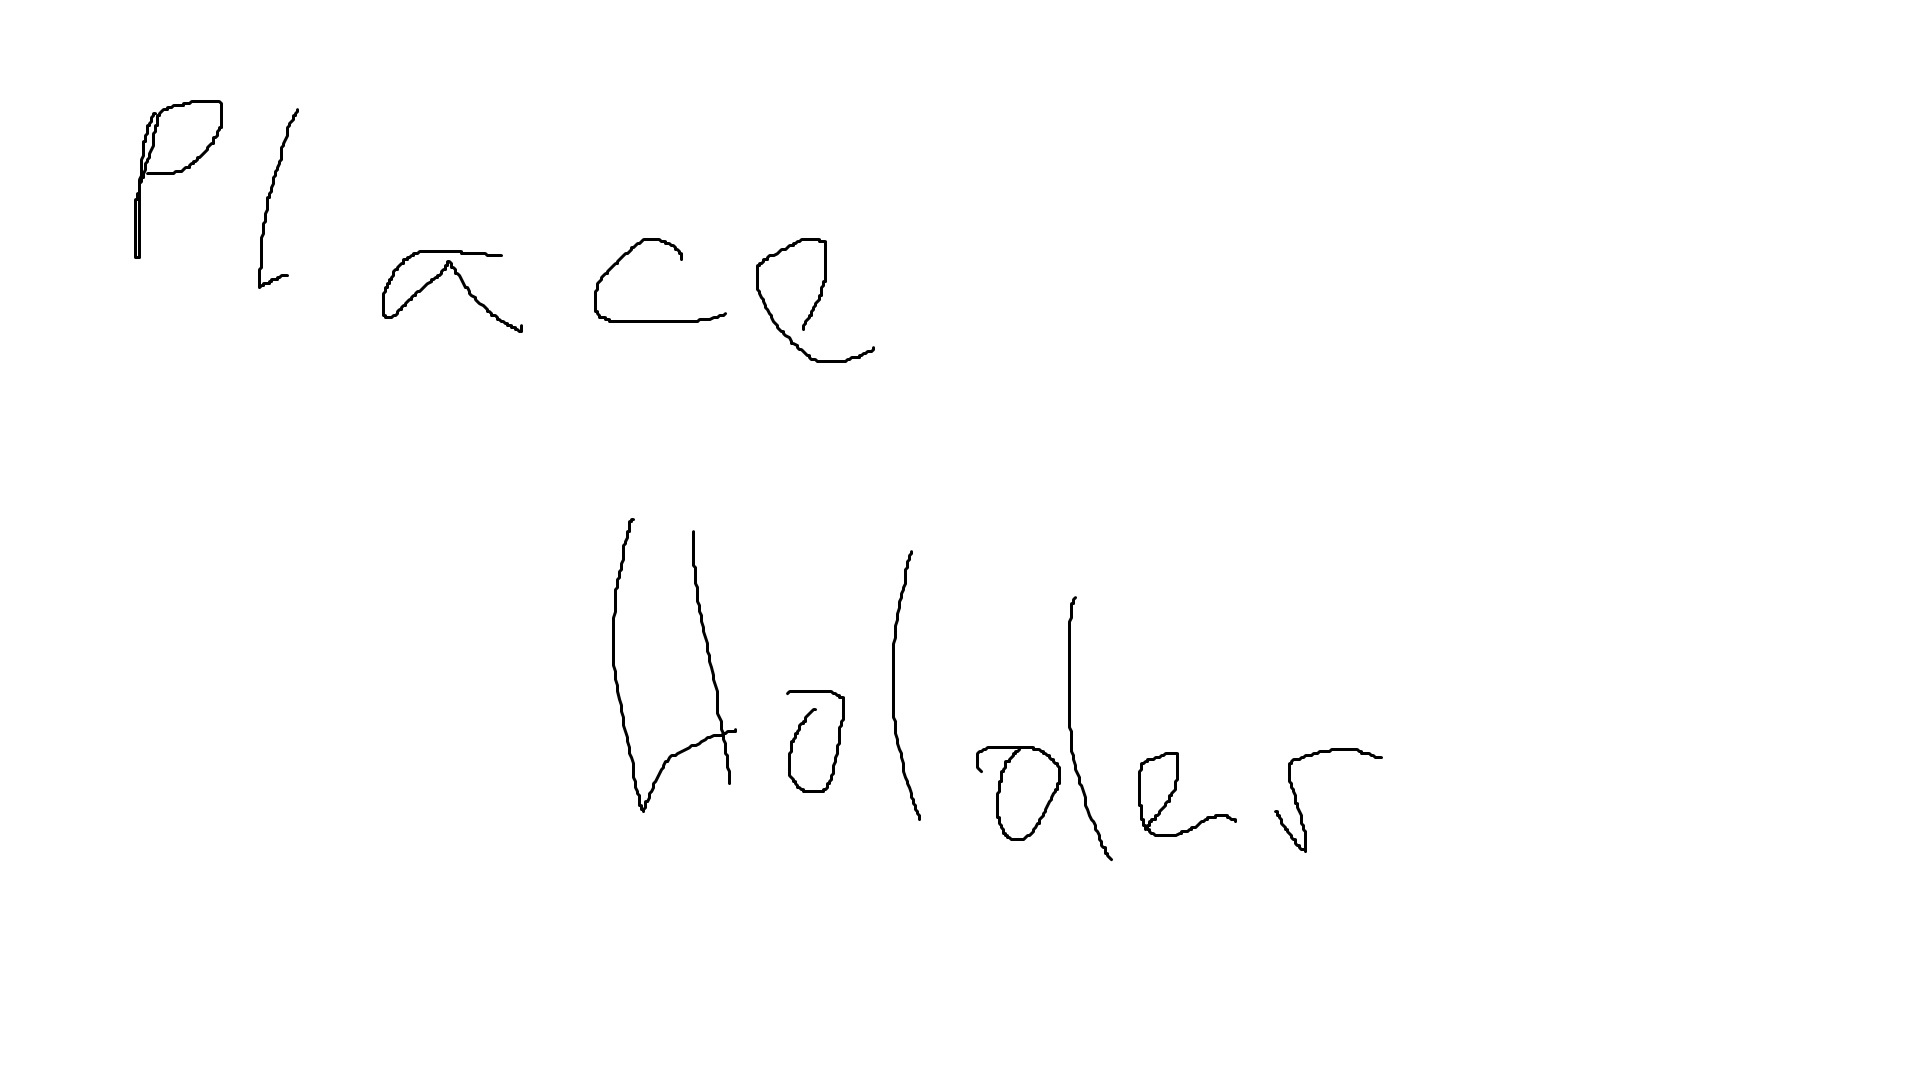 Place
Holder